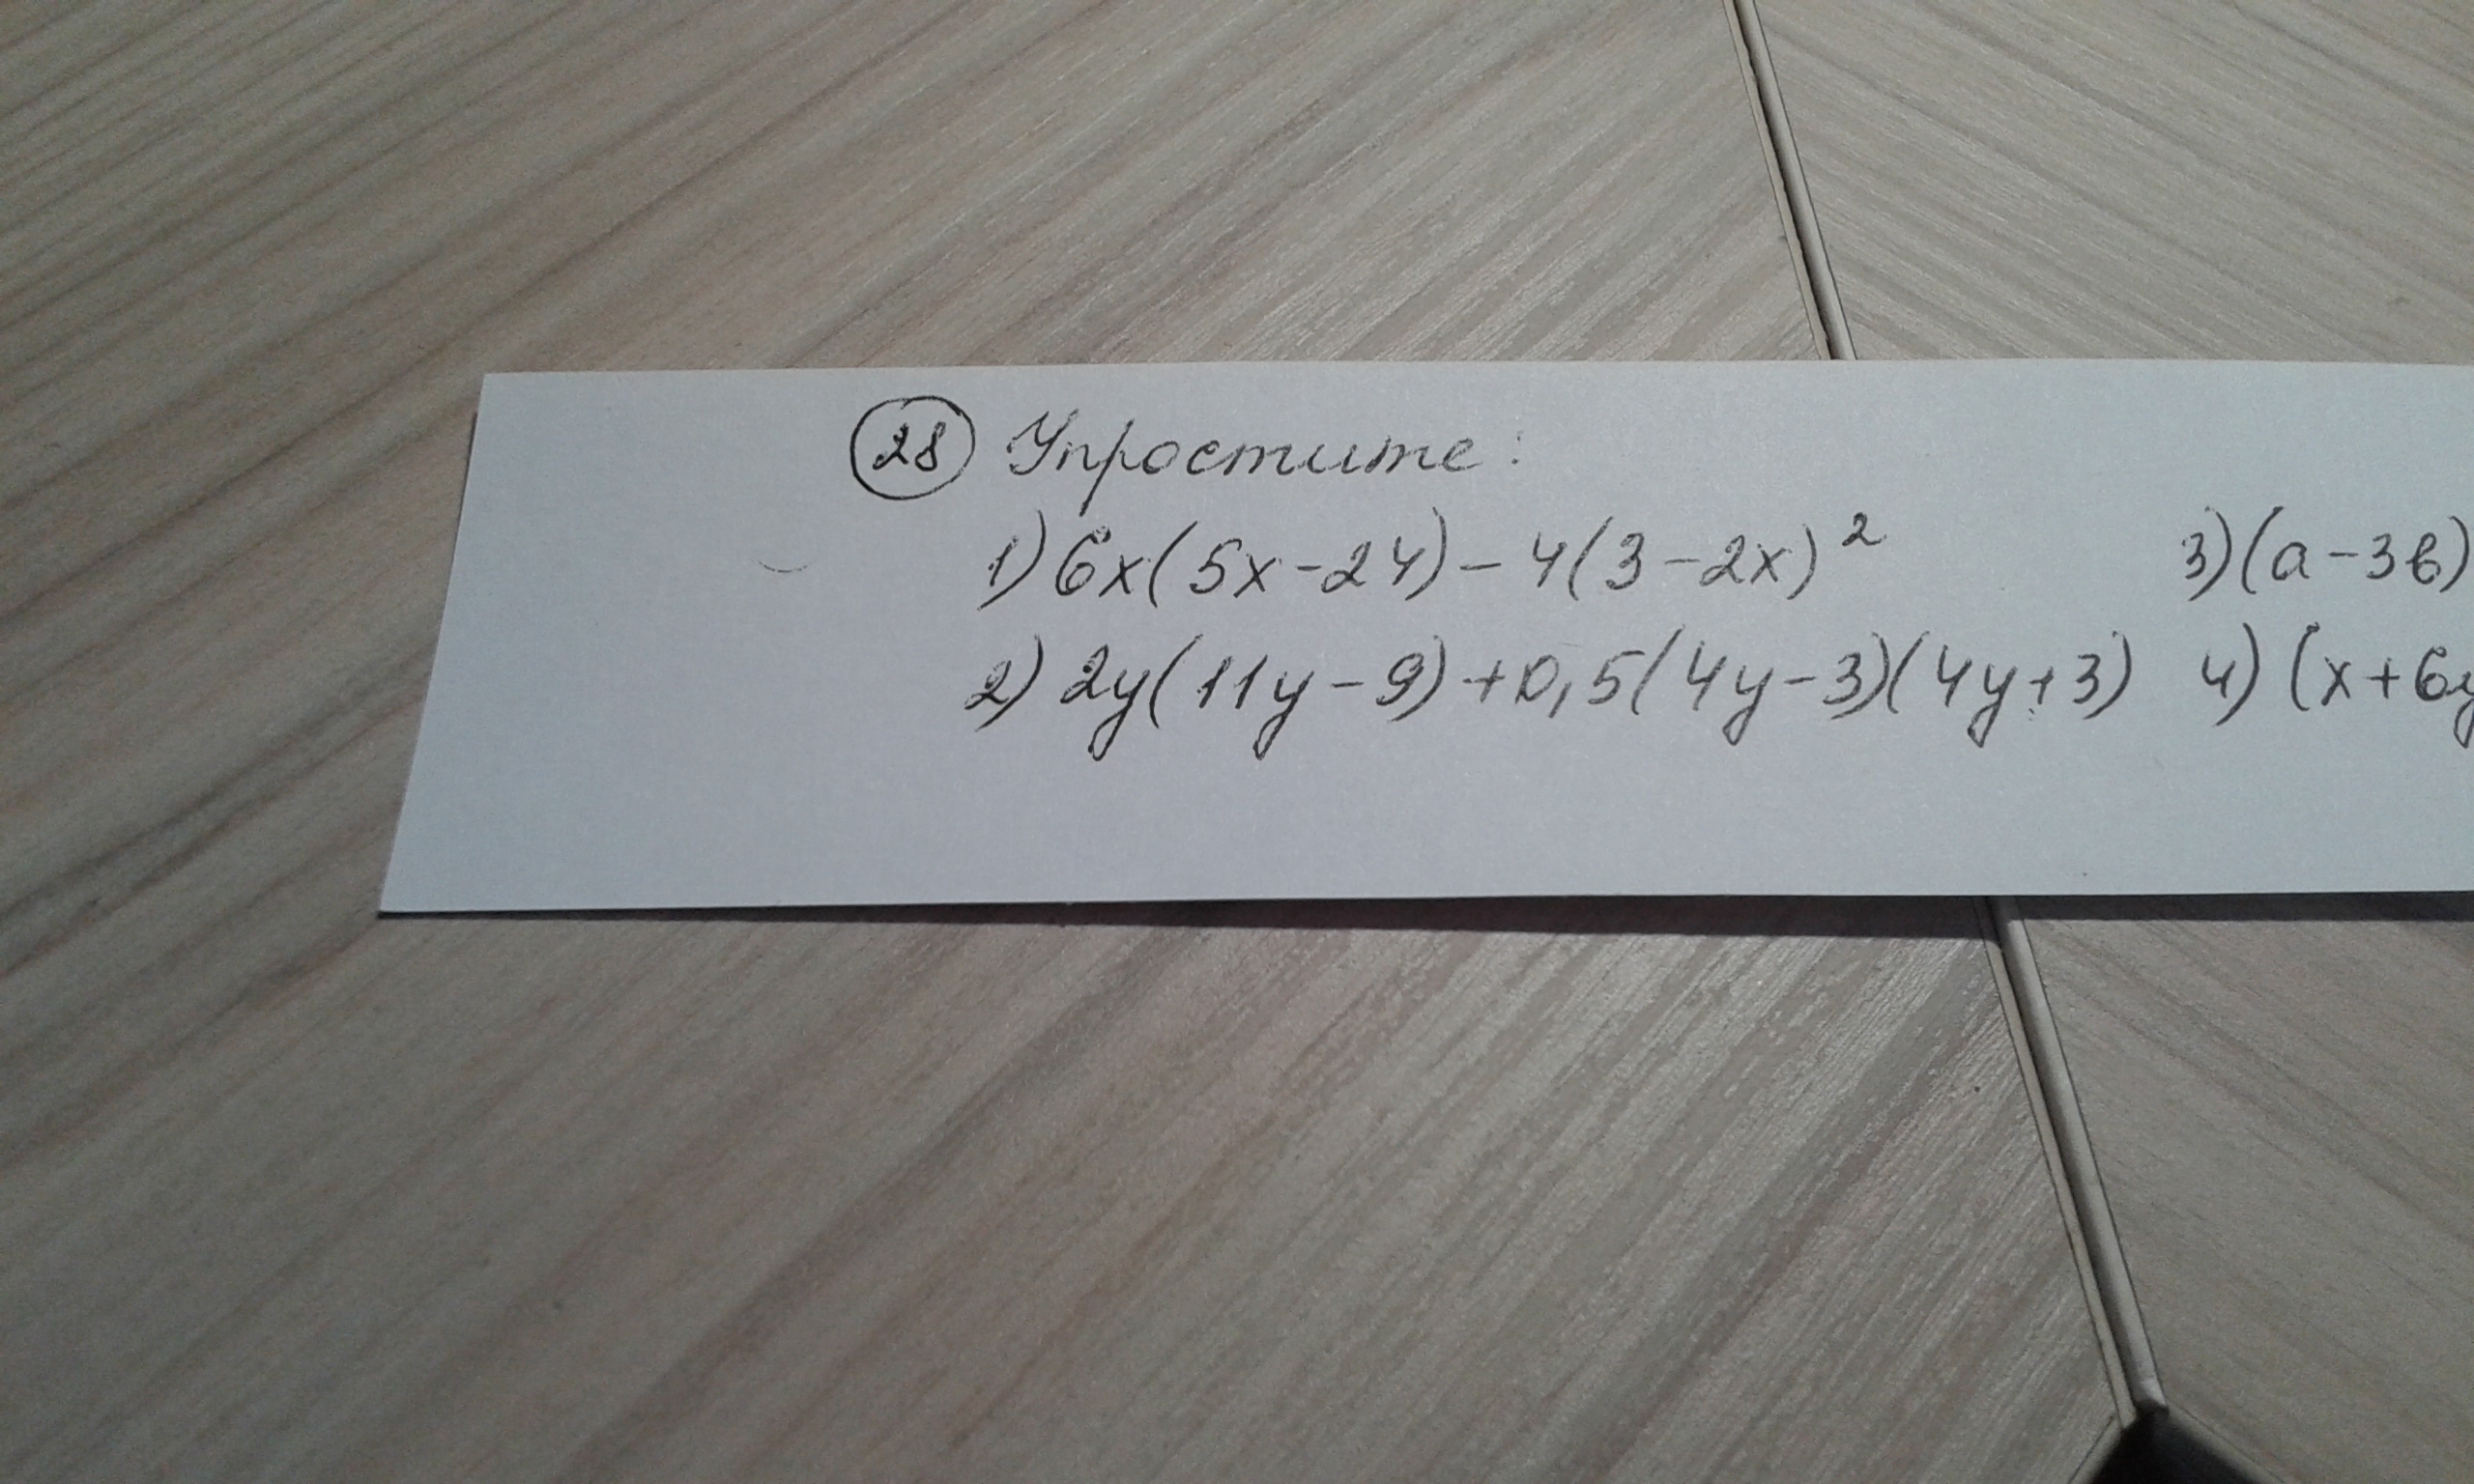 28 Упростите:
1) 6x(5x-24)-4(3-2x)² 3)(a-3b)
2) 2y(11y-9)+0,5(4y-3)(4y+3) 4) (x+6y